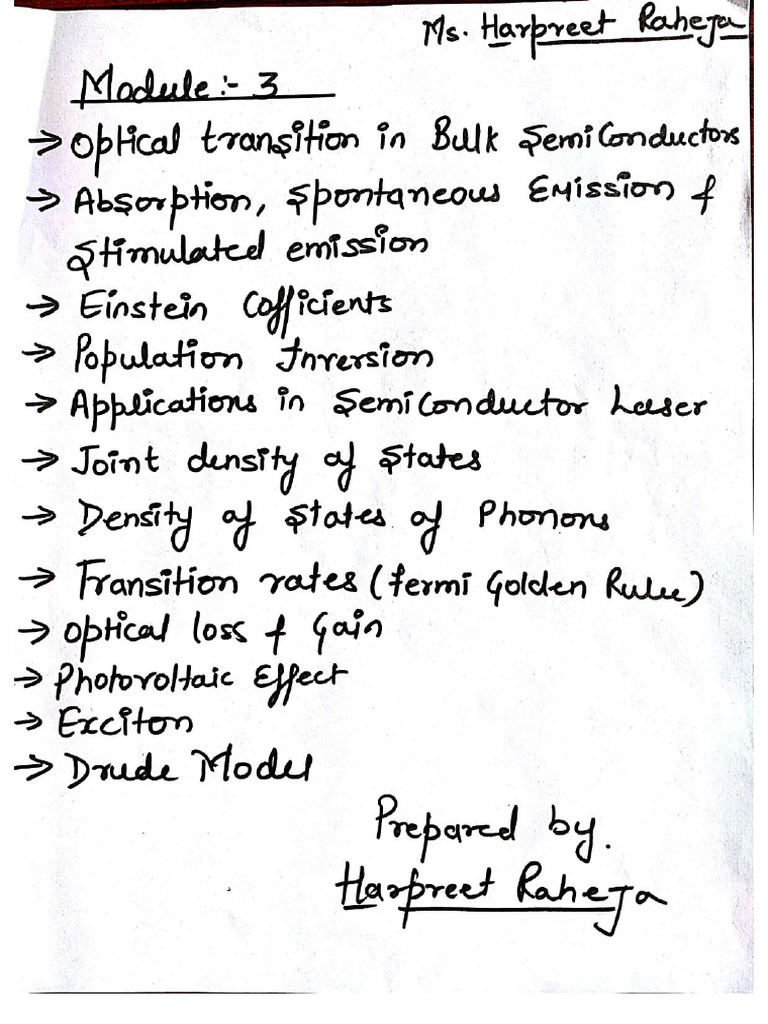 Ms. Harpreet Raheja
Module :- 3
→ Optical transition in Bulk SemiConductors
→ Absorption, Spontaneous Emission &
Stimulated emission
→ Einstein Cofficients
→ Population Inversion
→ Applications in SemiConductor Laser
→ Joint density of States
→ Density of States of Phonons
→ Transition rates (fermi Golden Rule)
→ Optical loss & Gain
→ Photovoltaic Effect
→ Exciton
→ Drude Model
Prepared by.
Harpreet Raheja